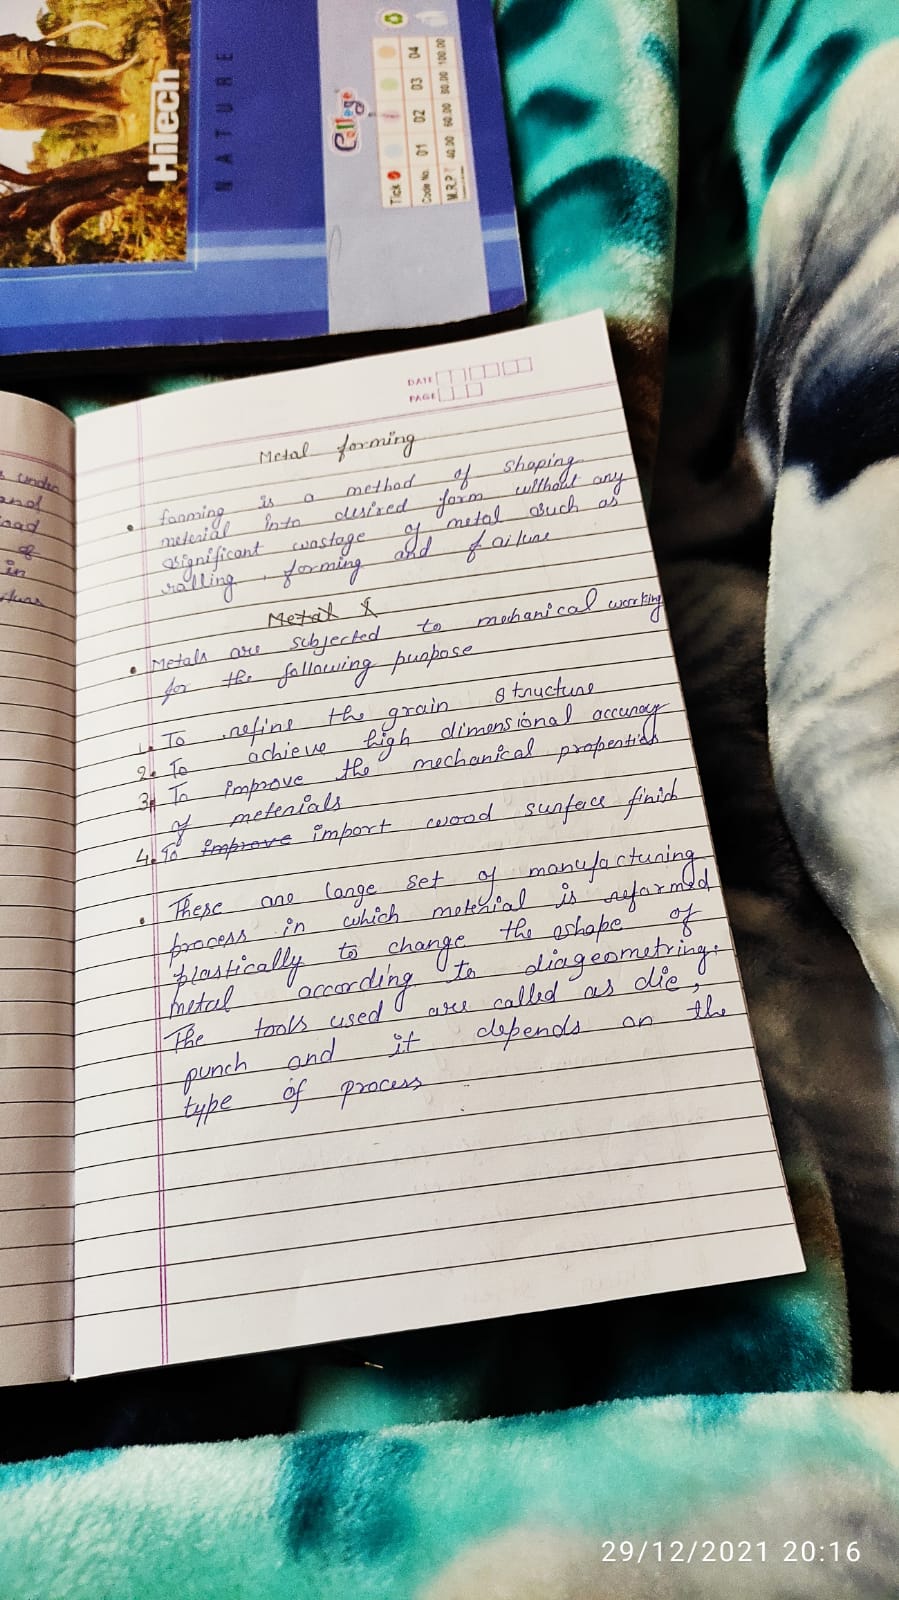 HiTech
NATURE
College
Tick
Code No. 01 02 03 04
M.R.P. 40.00 60.00 80.00 100.00
DATE
PAGE
Metal forming
• forming is a method of shaping
meterial into desired form without any
significant wastage of metal such as
ralling, forming and failure
Metal f
• Metals are subjected to mechanical working
for the following purpose
1. To refine the grain structure
2. To achieve high dimensional accuracy
3. To improve the mechanical properties
of meterials
4. To improve import wood surface finish
• These are large set of manufacturing
process in which meterial is reformed
plastically to change the shape of
metal according to diageometring.
The tools used are called as die,
punch and it depends on the
type of process
under
and
load
of
in
29/12/2021 20:16